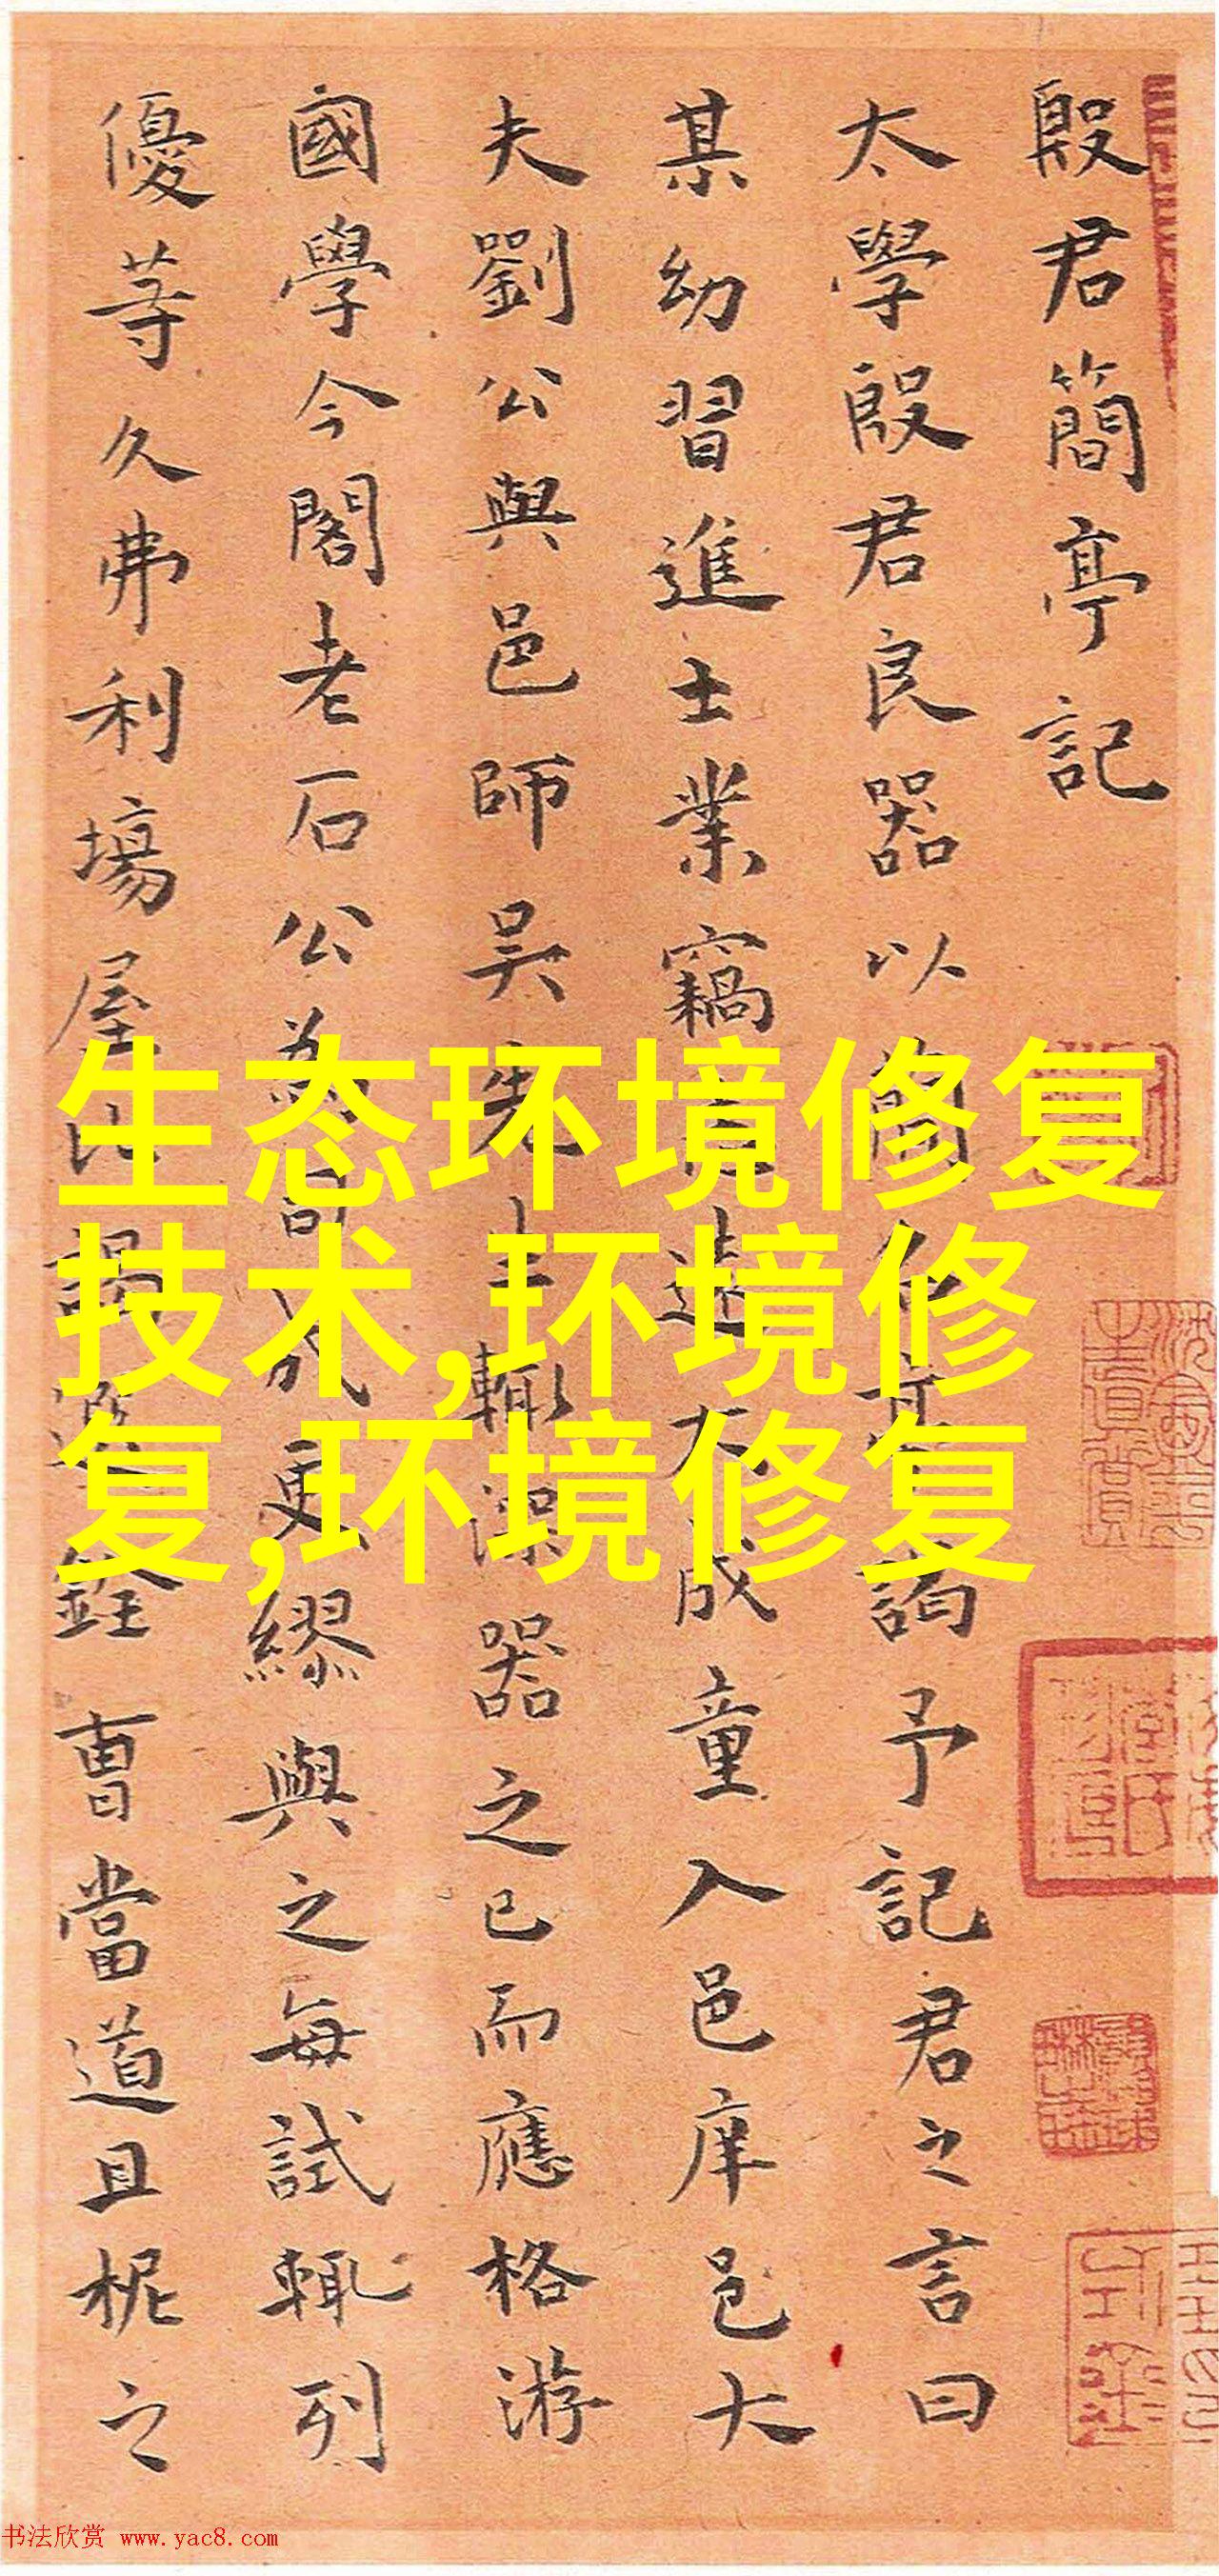 殷君簡亭記
太學殷君良器以簡名亭謁予記君之言曰
某幼習進士業竊遠大成童入邑庠邑大
夫劉公與邑師吳先生輒深器之已而應格游
國學今閣老石公為司成更繆與之每試輒列
優等久弗利場屋比謁選銓曹當道且柅之
生态环境修复
技术,环境修
复,环境修复
书法欣赏 www.yac8.com